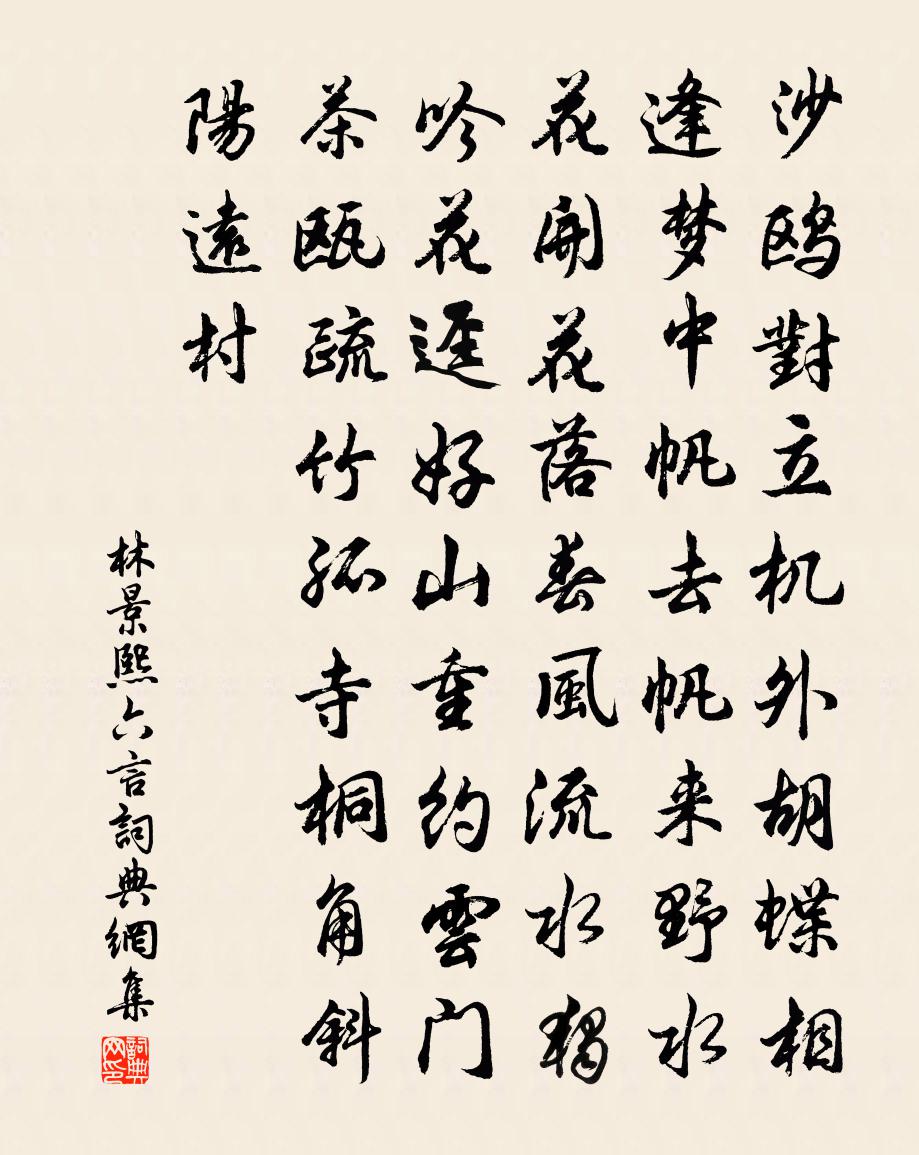 沙鷗對立机外胡蝶相
逢梦中帆去帆来野水
花開花落春風流水獨
吟花逕好山重約雲门
茶甌疏竹孤寺桐角斜
陽遠村
林景熙六言詞典網集
詞典
网印